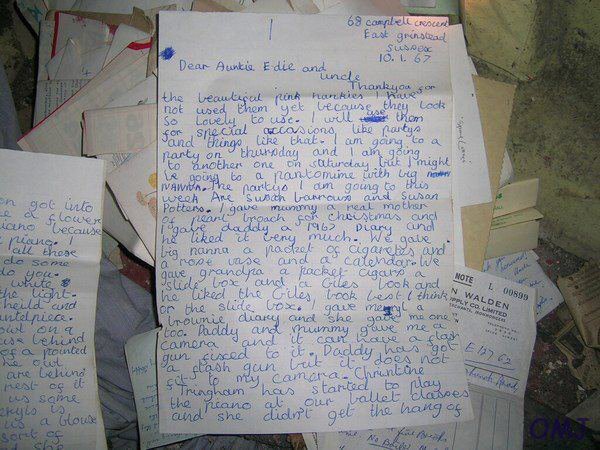 1
68 campbell crescent
East grinstead
Sussex
10.1.67
Dear Auntie Edie and
uncle
Thankyou for
the beautiful pink hankies I have
not used them yet because they look
so lovely to use. I will use them
for special occasions, like partys
and things like that. I am going to a
party on thursday and I am going
to another one on saturday but I might
be going to a pantomime with big
nanna. The partys I am going to this
week Are Susan barrows and Susan
Potters. I gave mummy a real mother
of pearl broach for christmas and
I gave daddy a 1967 Diary and
he liked it very much. We gave
big nanna a packet of cigarettes and
a rose vase and a calendar. We
gave grandpa a packet cigars a
slide box and a Giles book and
he liked the Giles, book best I think
or the slide box. I gave meryl
brownie diary and she gave me one
too. Daddy and mummy gave me a
camera and it can have a flash
gun ficsed to it. Daddy has got
a flash gun but it does not
fit to my camera. Christine
Tringham has started to play
the piano at our ballet classes
and she didn't get the hang of
on got into
e a flower
piano because
piano. I
all these
do some
do you
white
the light
held and
antelpiece.
oint on a
ase behind
of a pointed
the owl
are behind
rest of it
us some
eryls is
us a blouse
sort of
she
NOTE L 00899
N WALDEN
PPLY CO. LIMITED
E1762
OMJ